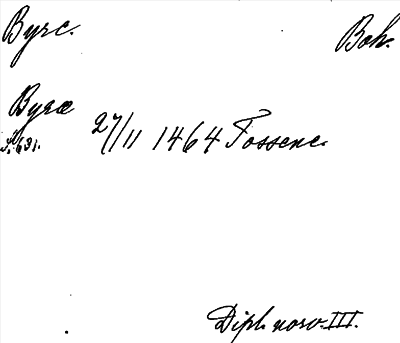 Byrc. Boh.
Byræ
S. 631. 27/11 1464 Fossene.
Dipl. norv. III.